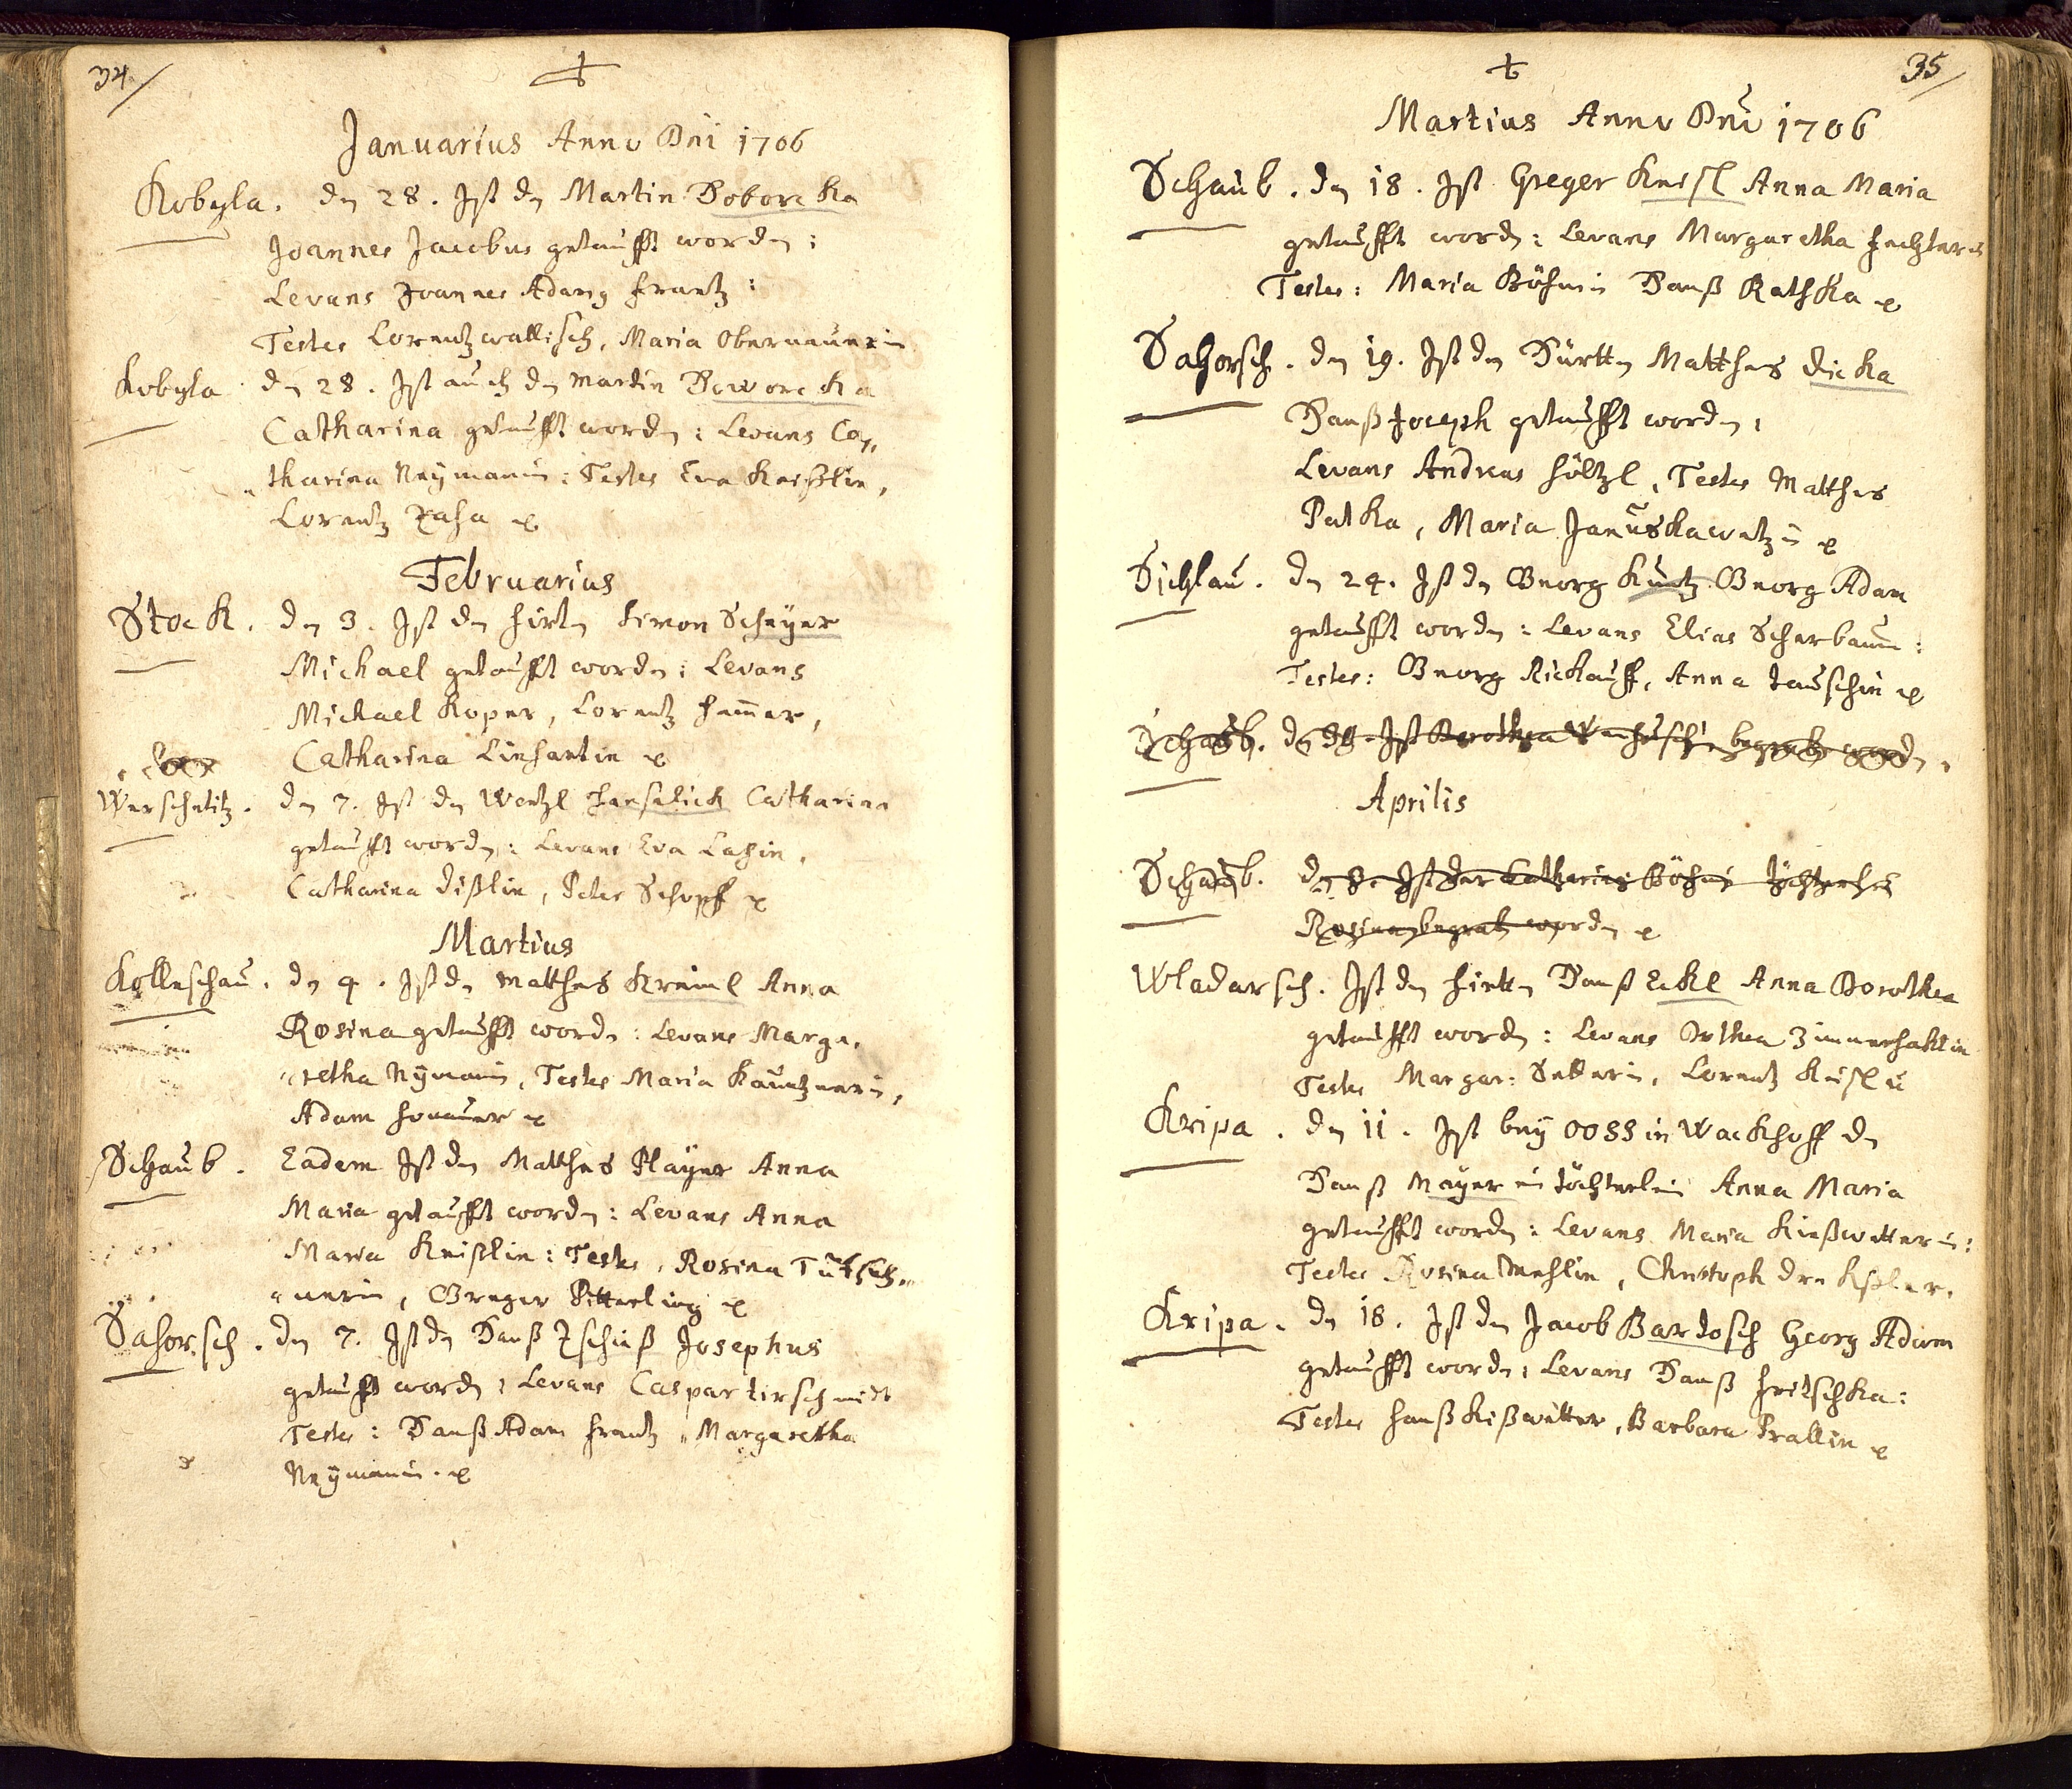 34
Januarius Anno Dni 1706
Kobyla. den 28. Ist den Martin Boborcka
Joannes Jacobus getaufft worden:
Levans Joannes Adam Frantz:
Testes Lorentz wallisch, Maria Obernauerin
Kobyla den 28. Ist auch den Martin Boworcka
Catharina getaufft worden: Levans Ca,,
,,tharina Neymanin: Testes Eva Kneißlin,
Lorentz
Februarius
Stock. den 3. Ist den hirten Simon Scheyer
Michael getaufft worden: Levans
Michael Koper, Lorentz hammer,
Catharina Linhartin
Werscheditz. den 7. Ist den Wentzl Hanselick Catharina
getaufft worden: Levans Eva
Catharina dißlin, Peter Schopff
Martius
Kolleschau. den 4. Ist den Matthes Kreiml Anna
Rosina getaufft worden: Levans Marga,
,,retha Nymanin, Testes Maria Kauntznerin,
Adam
Schaub. Eadem Ist den Matthes Player Anna
Maria getaufft worden: Levans Anna
Maria Kneißlin: Testes, Rosina
,,nerin, Greger Pitterling
Sahorsch. den 7. Ist den Hanß Josephus
getaufft worden: Levans Caspar Kirschnidt
Testes: Hanß Adam Frantz, Margaretha
Neymanin.
35
Martius Anno Dni 1706
Schaub. den 18. Ist Greger Kneißl Anna Maria
getaufft worden: Levans Margaretha
Testes: Maria Böhmin Hanß Rathka
Sahorsch. den 19. Ist den Matthes dicka
Hanß Joseph getaufft worden:
Levans Andreas höltzl, Testes Matthes
Patka, Maria
Sichlau. den 24. Ist den Georg Kuntz Georg Adam
getaufft worden: Levans Elias Scherbaum:
Testes: Georg Rickauff, Anna Tauschin
Schaub. Ist Dorothea begraben worden.
Aprilis
Schaub. den 8. Ist der Catharina Böhmin töchterlein
Rosina begraben worden
Wladarsch. Ist den hirtten Hanß Eckl Anna Dorothea
getaufft worden: Levans Orthea Zimmerhaklin
Testes Margar: Lorentz
Kripa. den 11. Ist bey OOSS in Wackhoff den
Hanß Mayer ein töchterlein Anna Maria
getaufft worden: Levans Maria Kießwetterin:
Testes Rosina Christoph
Kripa. den 18. Ist den Jacob Bartosch Georg Adam
getaufft worden: Levans Hanß Fritschka:
Testes hanß Kißwetter, Barbara Prallin